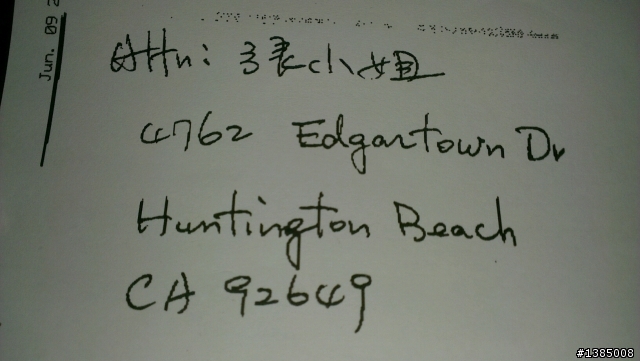 Jun. 09 2
Attn: 張小姐
4762 Edgartown Dr
Huntington Beach
CA 92649
#1385008